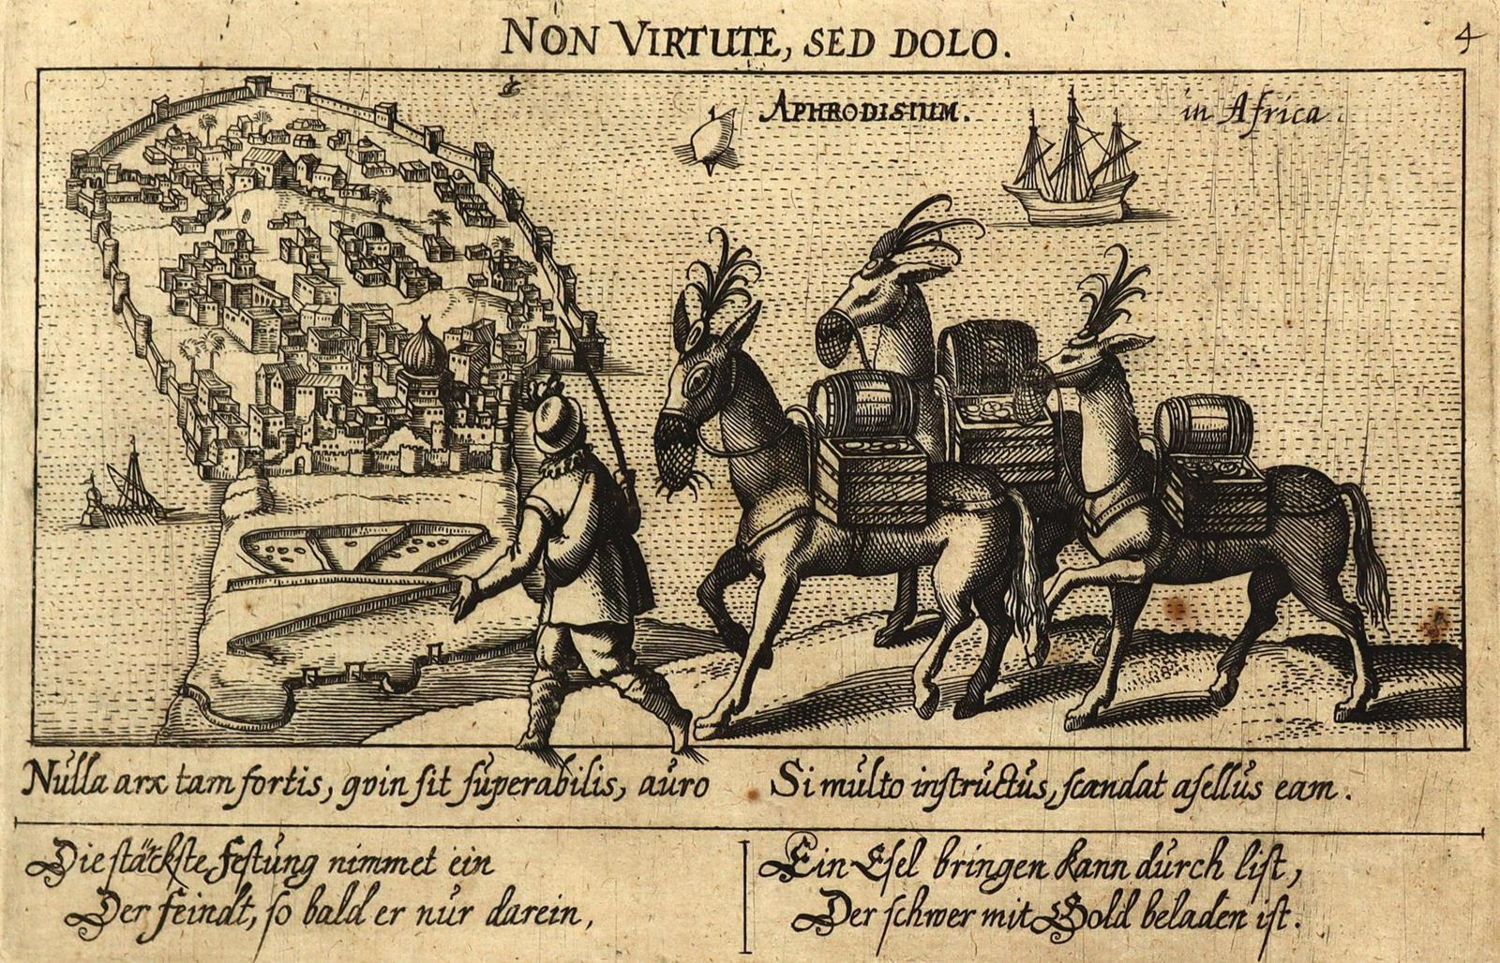 NON VIRTUTE, SED DOLO.
4
APHRODISIUM.
in Africa.
Nulla arx tam fortis, qvin sit superabilis, auro
Si multo instructus, scandat asellus eam.
Die stärckste festung nimmet ein
Der feindt, so bald er nur darein,
Ein Esel bringen kann durch list,
Der schwer mit Gold beladen ist.